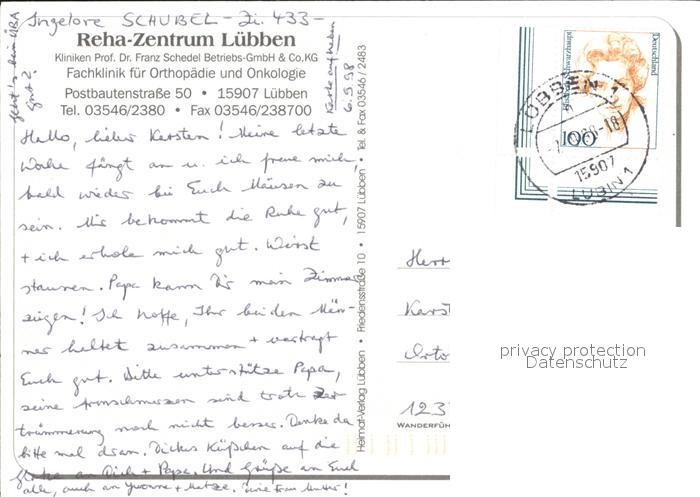 Ingelore SCHUBEL - Zi. 433 -
Reha-Zentrum Lübben
Kliniken Prof. Dr. Franz Schedel Betriebs-GmbH & Co.KG
Fachklinik für Orthopädie und Onkologie
Postbautenstraße 50 • 15907 Lübben
Tel. 03546/2380 • Fax 03546/238700
Hallo, lieber Karsten! Meine letzte
Woche fängt an u. ich freue mich
bald wieder bei Euch Mäusen zu
sein. Mir bekommt die Ruhe gut,
+ ich erhole mich gut. Wirst
staunen. Papa kann Dir mein Zimmer
zeigen! Ich hoffe, Ihr beiden Män-
ner haltet zusammen + vertragt
Euch gut. Bitte unterstütze Papa,
seine Armschmerzen sind trotz Zer-
trümmerung noch nicht besser. Denke da
bitte mal dran. Dickes Küßchen auf die
an Dich + Papa. Und Grüße an Euch
alle, auch an Yvonne + Matze. Eure Frau Mutter!
Geht's beim ÜBA
gut?
Karte aufheben
6.5.98
Heimat-Verlag Lübben • Friedensstraße 10 • 15907 Lübben • Tel. & Fax 03546 / 2483
Deutschland
100
LÜBBEN 1
-18
15907
LUBIN 1
Herr
Karst
123
WANDERFÜH
privacy protection
Datenschutz